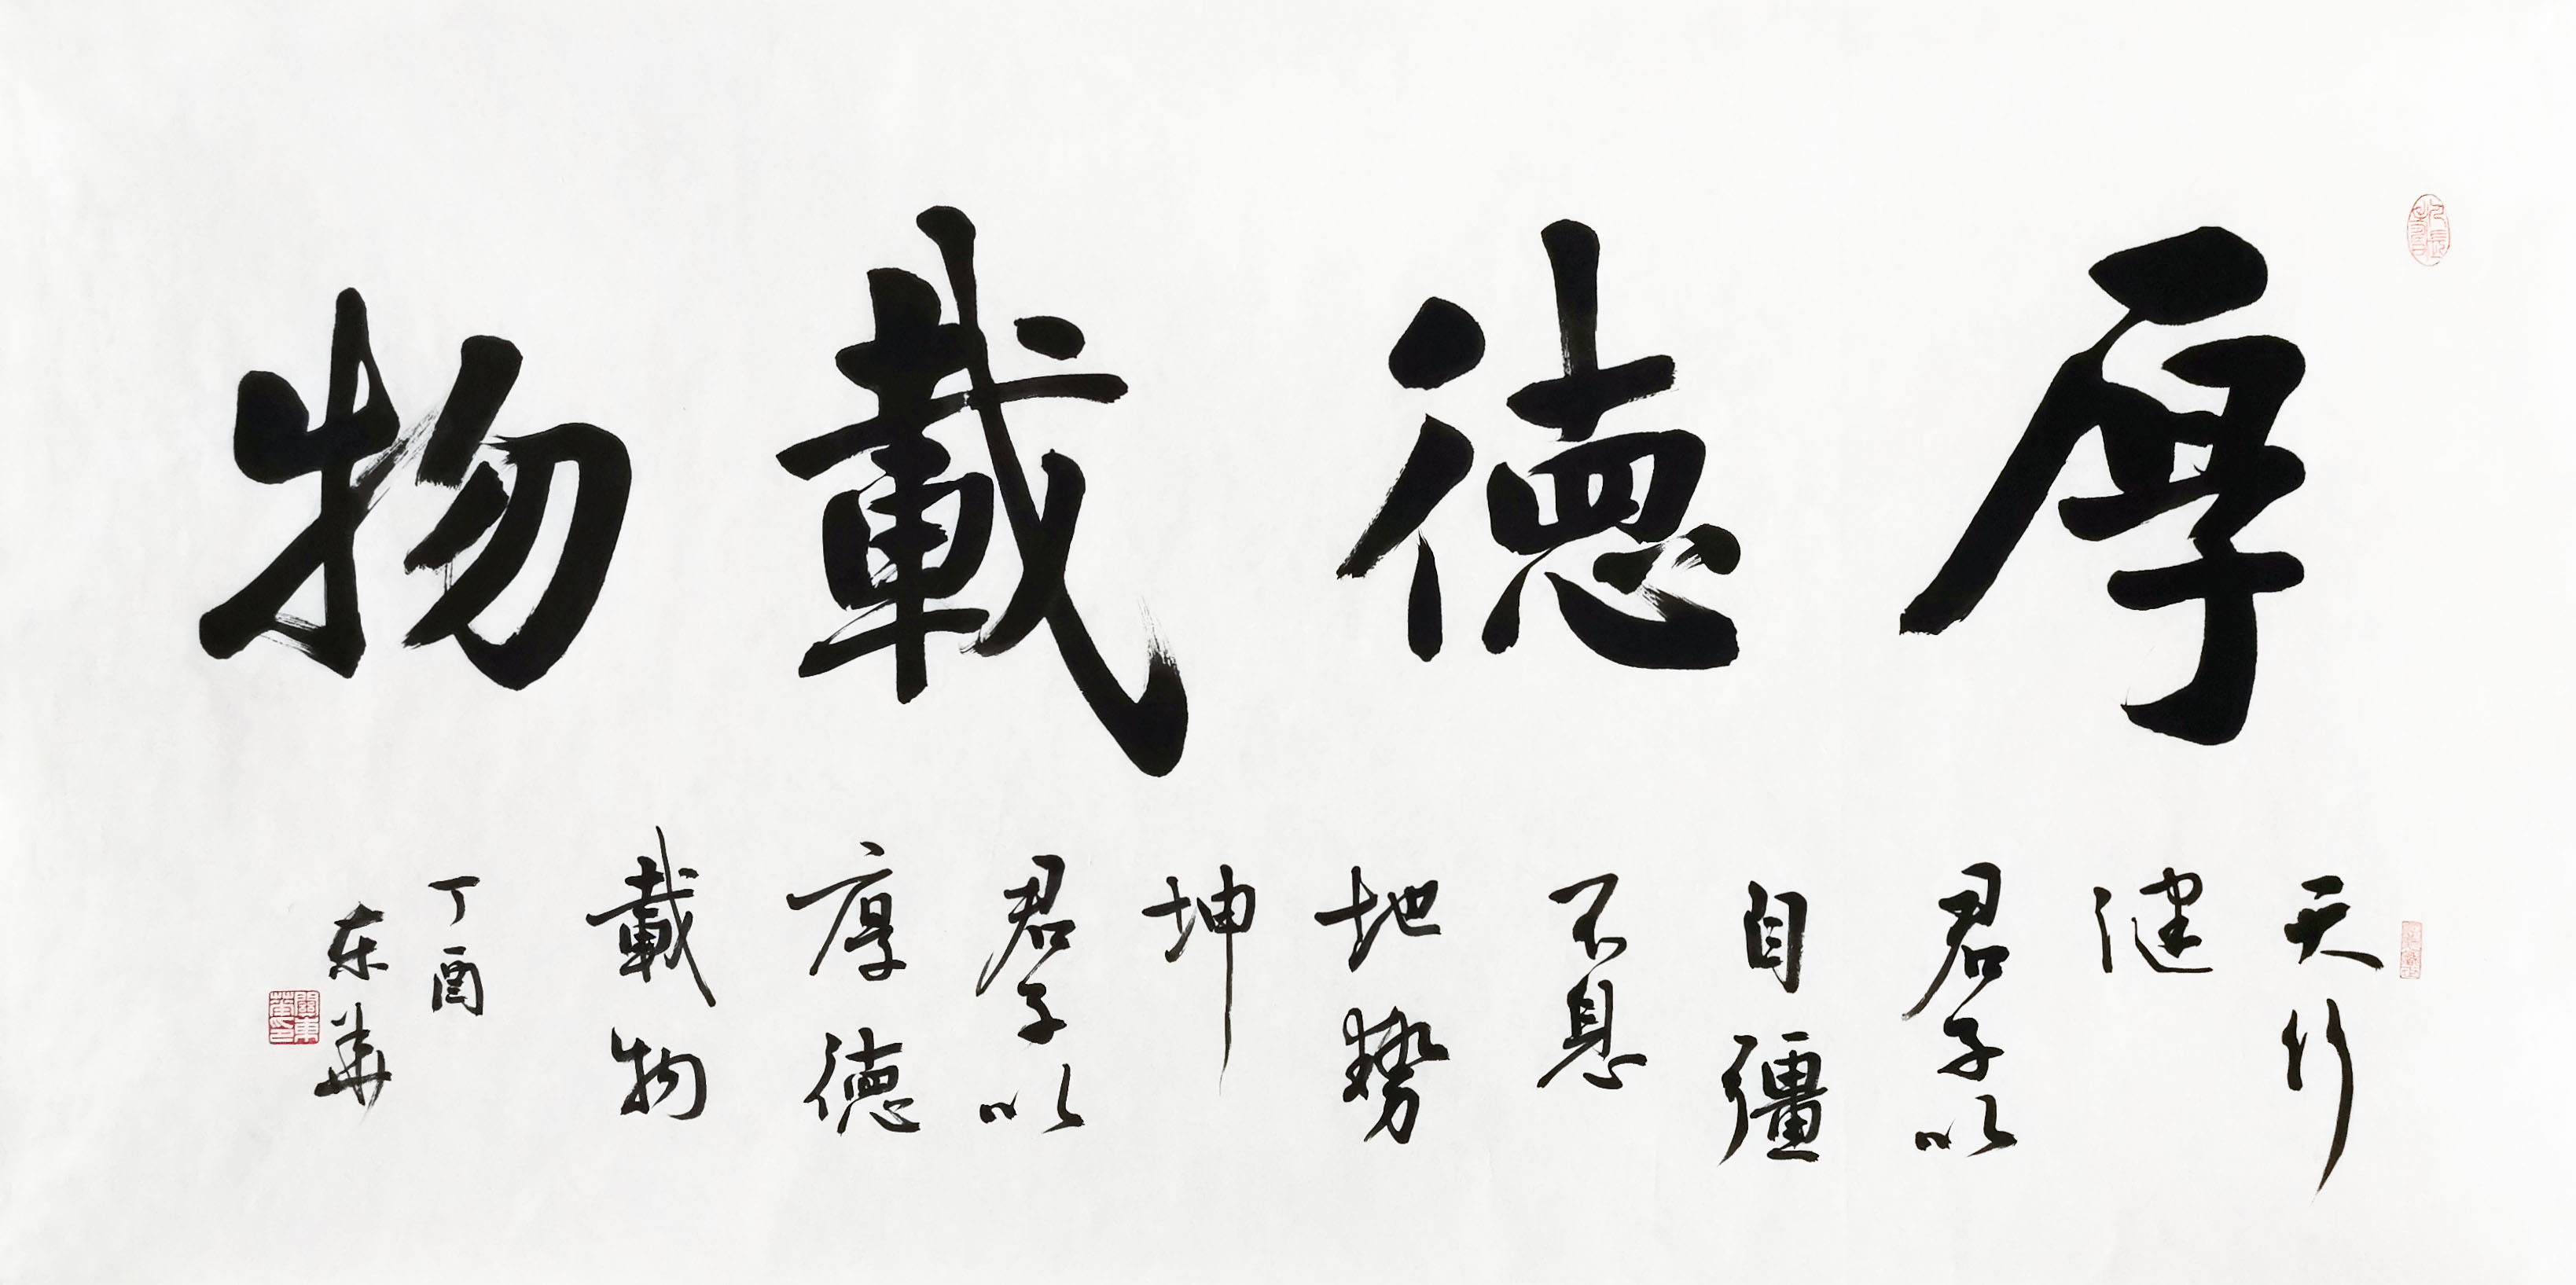 厚德載物
天行
健
君子以
自彊
不息
地勢
坤
君子以
厚德
載物
丁酉
东華
關東華印